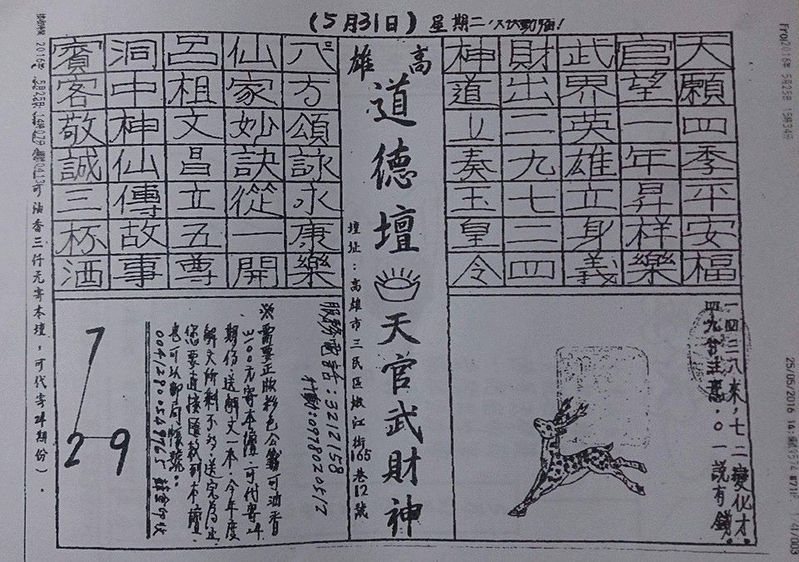 (5月31日) 星期二
天願四季平安福
官望一年昇祥樂
武界英雄立身義
財出二九七二四
神道立奏玉皇令
一四三八來,七二變化才.
四九 注意,0一說有錢.
高雄
道德壇 天官武財神
壇址:高雄市三民區嫩江街165巷12號
八方頌詠永康樂
三
仙家妙訣從一開
呂祖文昌立五尊
洞中神仙傳故事
賓客敬誠三杯酒
服務電話:3212758
行動:0978020512
※需要正版彩色公籤可油香
3100元寄本壇,可代寄24
期仔,送解文一本,今年度
解文所剩不多,送完為止
您要直接匯款到本壇,
也可以郵局帳號:
0041280549765
7
2 9
可油香三仟元寄本壇,可代寄24期份).
2016年 5月25日 15時34分
25/05/2016 14: